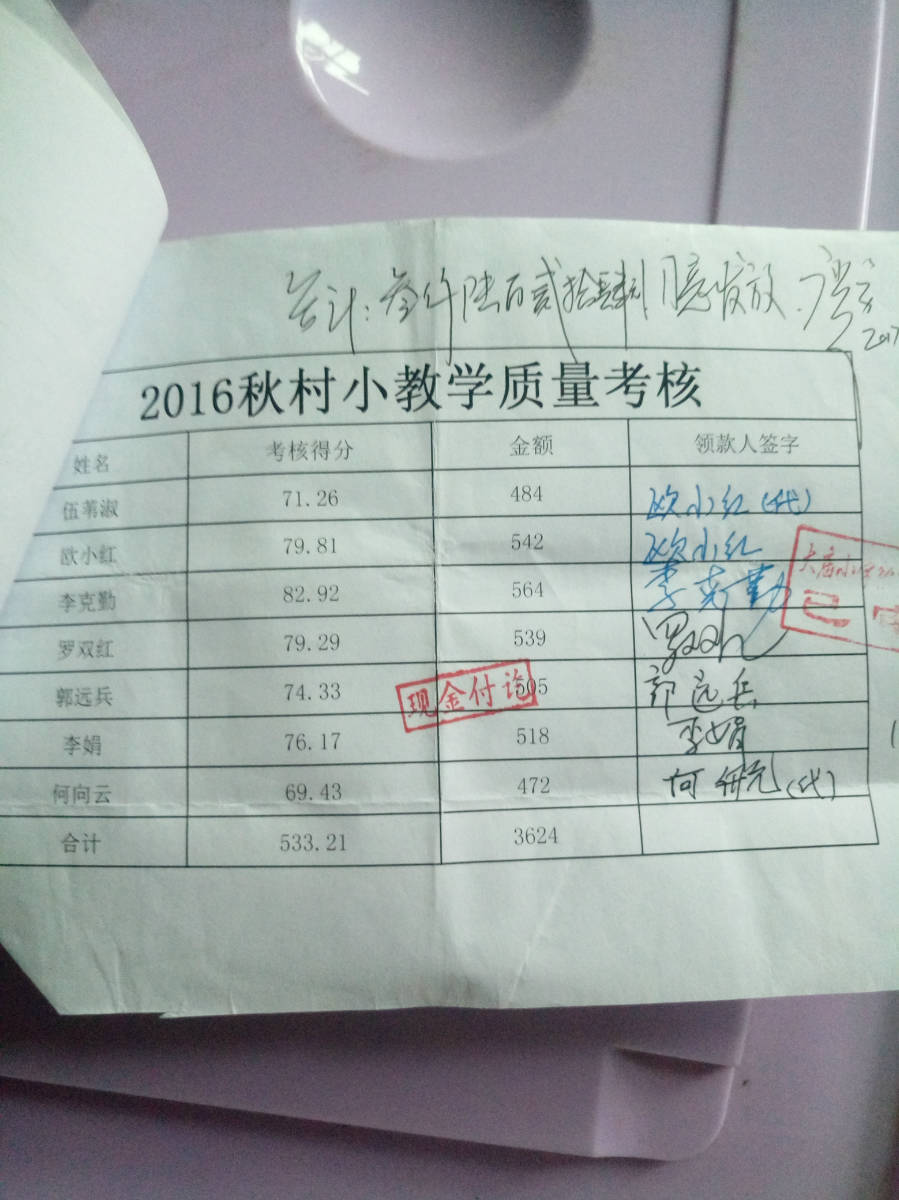 合计：叁仟陆百贰拾肆元！同意发放.
2017
2016秋村小教学质量考核
姓名 考核得分 金额 领款人签字
伍苇淑 71.26 484 欧小红(代)
欧小红 79.81 542 欧小红
李克勤 82.92 564 李克勤
罗双红 79.29 539 罗双红
郭远兵 74.33 505 郭远兵
李娟 76.17 518 李娟
何向云 69.43 472 (代)
合计 533.21 3624
现金付讫
已